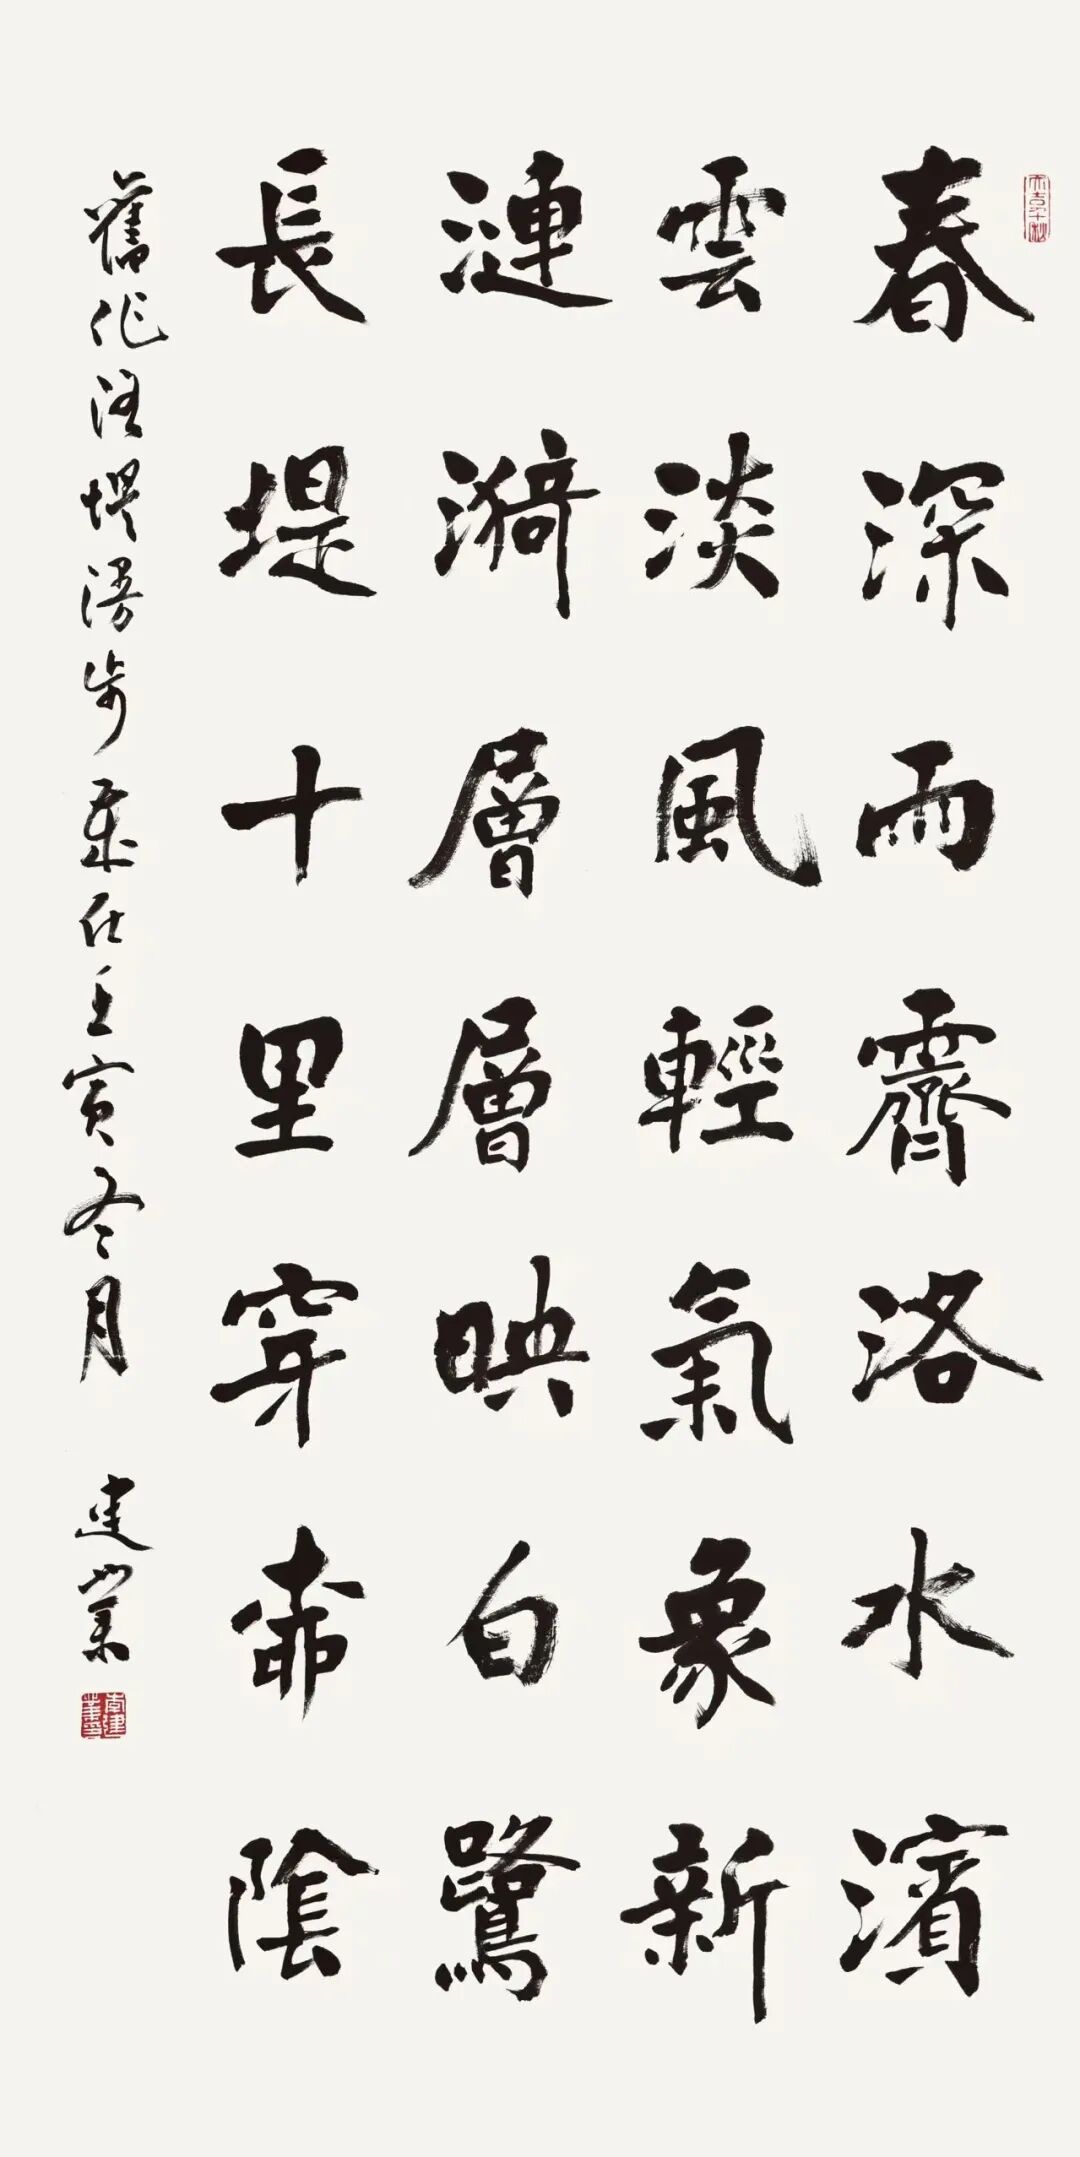 春深雨霽洛水濱
雲淡風輕氣象新
漣漪層層映白鷺
長堤十里穿柳陰
舊作洛堤漫步歲在壬寅冬月 建業
李建業印